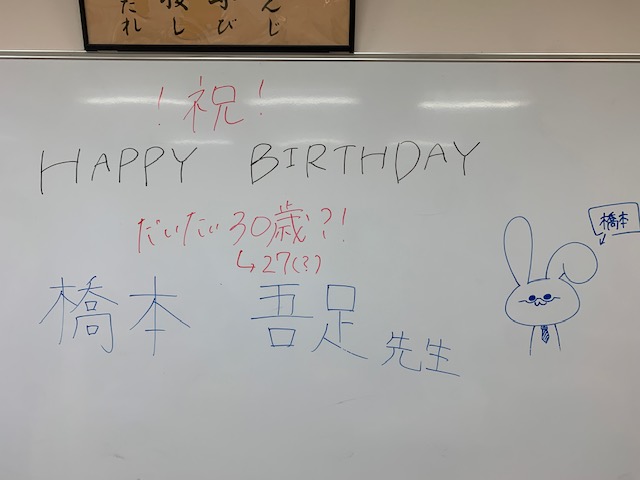 !祝!
HAPPY BIRTHDAY
だいたい30歳?!
↳27(?)
橋本 吾足 先生
橋本